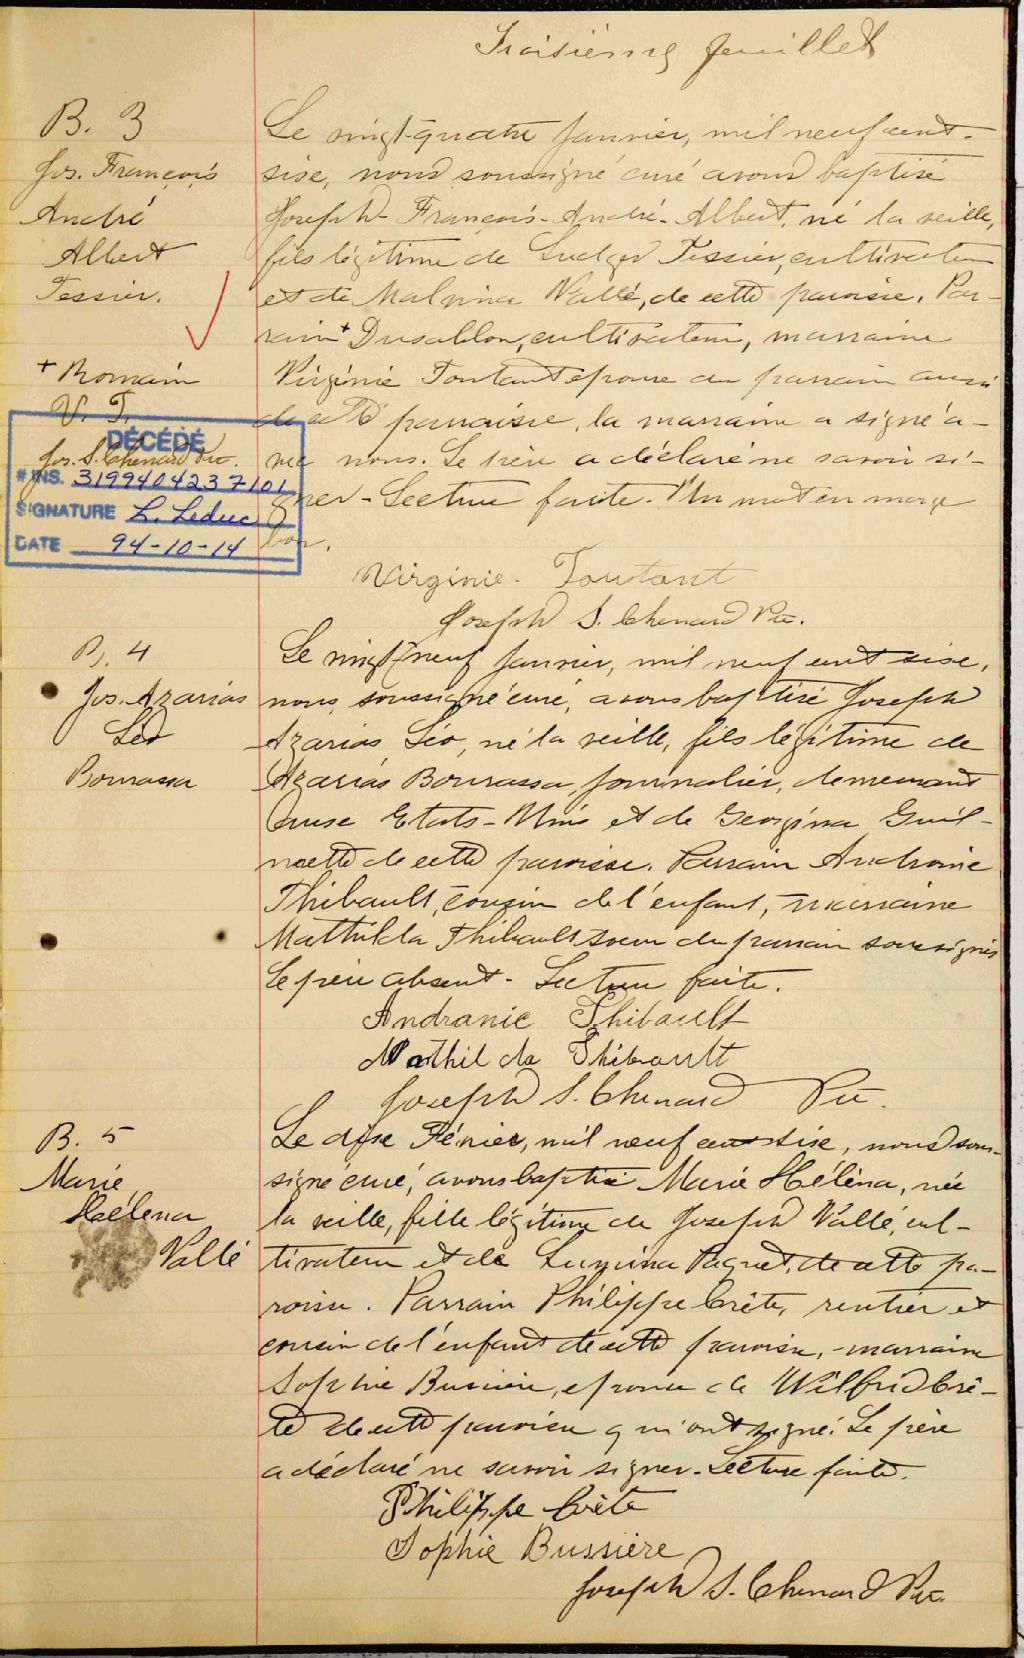 Troisième feuillet
B. 3
Jos. François
André
Albert
Tessier.
+ Romain
V. T.
Jos. S. Chenard Ptr.
DÉCÉDÉ
# INS. 3199404237101
SIGNATURE L. Leduc
DATE 94-10-14
Le vingt-quatre janvier, mil neuf cent-
sise, nous soussigné curé avons baptisé
Joseph François-André-Albert, né la veille,
fils légitime de Ludger Tessier, cultivateur
et de Malvina Vallé, de cette paroisse. Par-
rain + Dusablon, cultivateur, marraine
Virginie Toutant épouse du parrain aussi
de cette paroisse, la marraine a signé a-
vec nous. Le père a déclaré ne savoir si-
gner - Lecture faite. Un mot en marge
bon.
Virginie. Toutant
Joseph S. Chenard Ptr.
B. 4
Jos. Azarias
Léo
Bourassa
Le vingt neuf janvier, mil neuf cent sise,
nous, soussigné curé, avons baptisé Joseph
Azarias Léo, né la veille, fils légitime de
Azarias Bourassa, journalier, demeurant
aux Etats-Unis et de Georgina Guil-
mette de cette paroisse. Parrain Andronie
Thibault, cousin de l'enfant, marraine
Mathilda Thibault soeur du parrain soussignés
Le père absent - Lecture faite.
Andranie Thibault
Mathilda Thibault
Joseph S. Chenard Ptr.
B. 5
Marie
Hélena
Vallé
Le dise Février, mil neuf cent sise, nous sous-
signé curé, avons baptisé Marie Héléna, née
la veille, fille légitime de Joseph Vallé, cul-
tivateur et de Luvina Paquet, de cette pa-
roisse. Parrain Philippe Crête, rentier et
cousin de l'enfant de cette paroisse, - marraine
Sophie Bussière, épouse de Wilfrid Crê-
te de cette paroisse qui ont signé. Le père
a déclaré ne savoir signer - Lecture faite.
Philippe Crête
Sophie Bussière
Joseph S. Chenard Ptr.